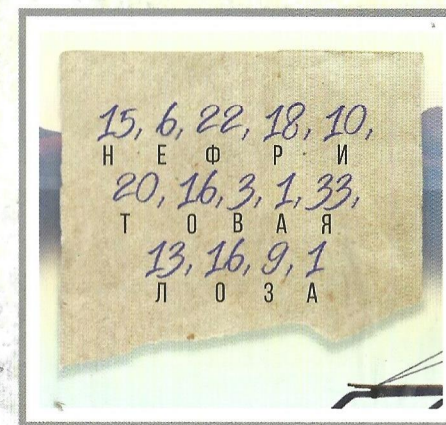 15, 6, 22, 18, 10,
Н Е Ф Р И
20, 16, 3, 1, 33,
Т О В А Я
13, 16, 9, 1
Л О З А